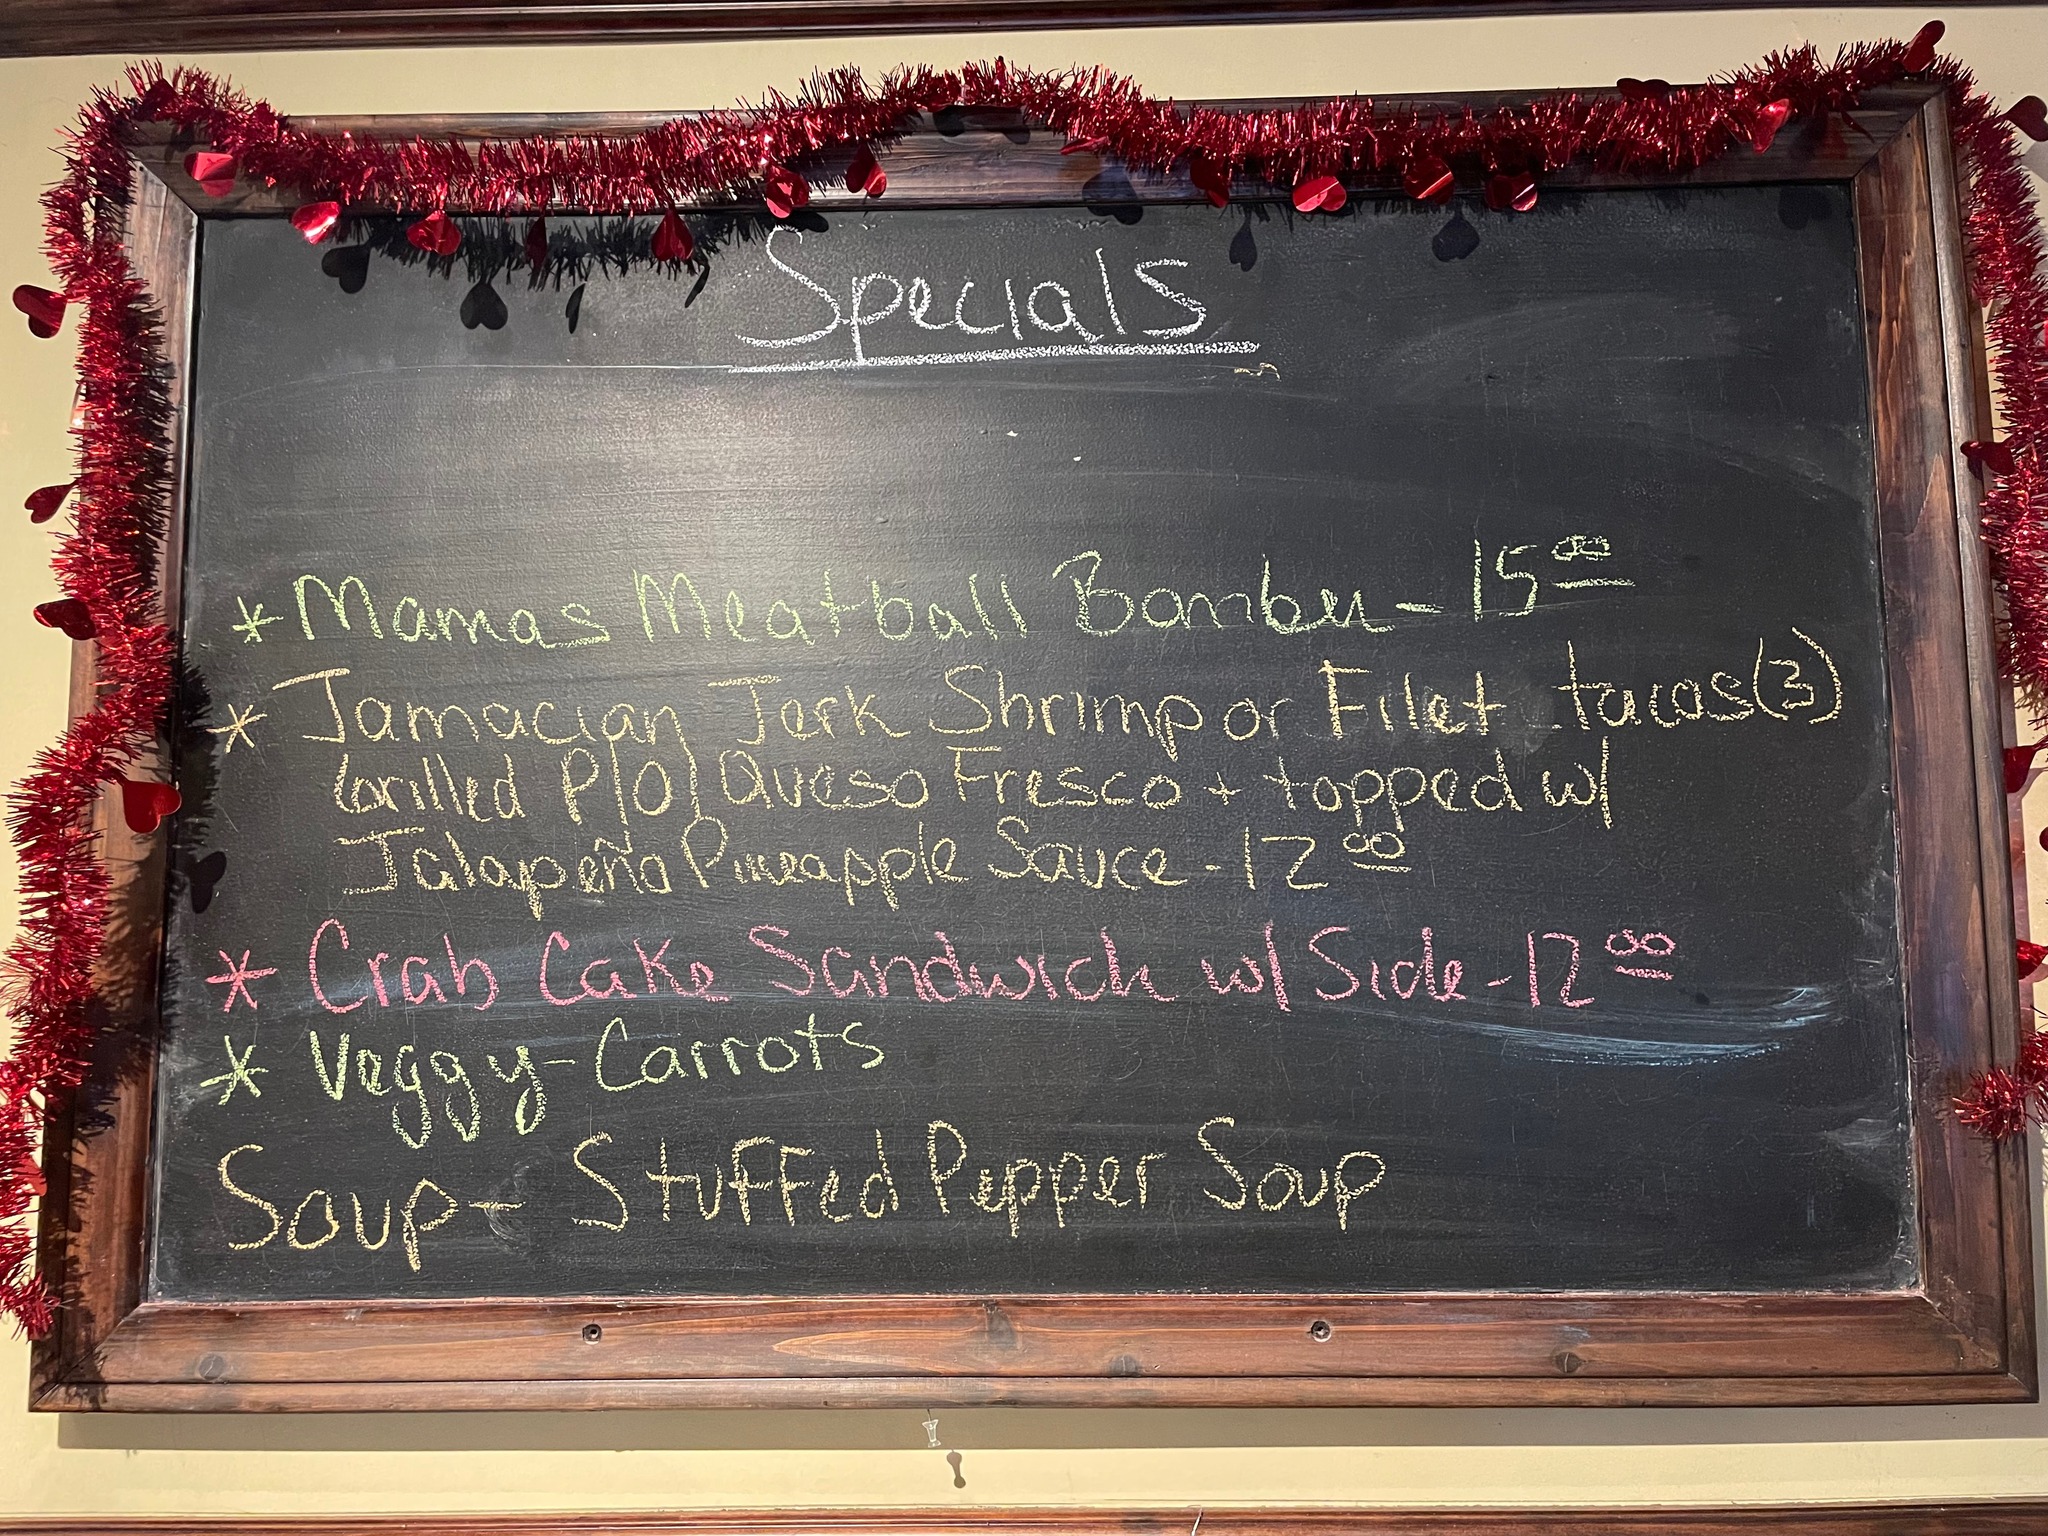 Specials
* Mamas Meatball Bomber - 15.00
* Jamacian Jerk Shrimp or Filet tacos (3)
Grilled P/O/ Queso Fresco + topped w/
Jalapeño Pineapple Sauce - 12.00
* Crab Cake Sandwich w/ Side - 12.00
* Veggy - Carrots
Soup - Stuffed Pepper Soup